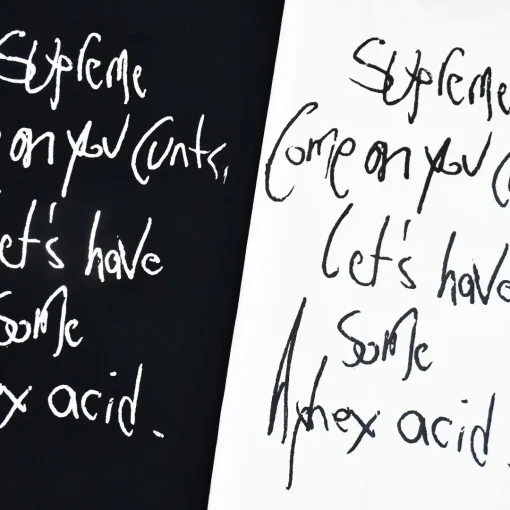 Supreme
on you cunts,
Let's have
some
ex acid.
Supreme
Come on you
Let's have
some
Aphex acid.